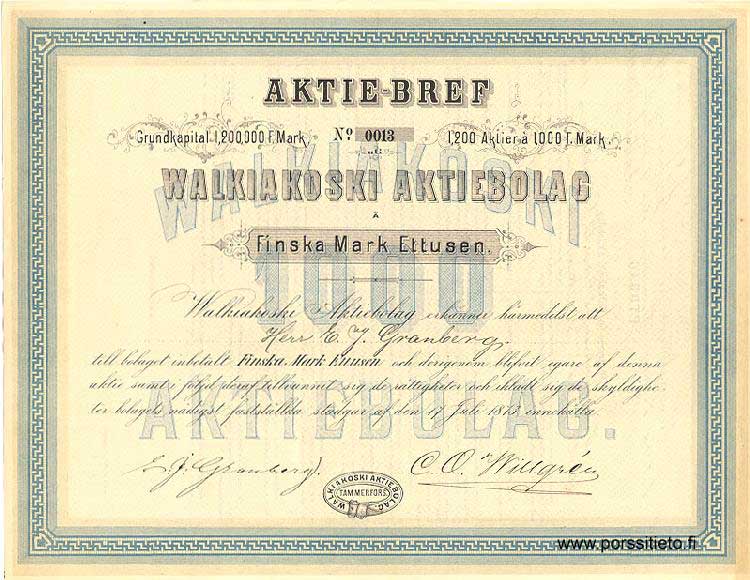 AKTIE-BREF
Grundkapital 1,200,000 F. Mark. No 0013 1,200 Aktier à 1000 F. Mark.
WALKIAKOSKI
WALKIAKOSKI AKTIEBOLAG
à
Finska Mark Ettusen.
1000
Walkiakoski Aktiebolag erkänner härmedelst att
Herr E. J. Granberg.
till bolaget inbetalt Finska Mark Ettusen och derigenom blifvit egare af denna
aktie samt i följd deraf tillvunnit sig de rättigheter och iklädt sig de skyldighe-
ter bolagets nådigst fastställda stadgar af den 17 Juli 1873 innehålla.
AKTIEBOLAG.
E. J. Granberg. C. O. Willgrén
WALKIAKOSKI AKTIEBOLAG
TAMMERFORS
www.porssitieto.fi